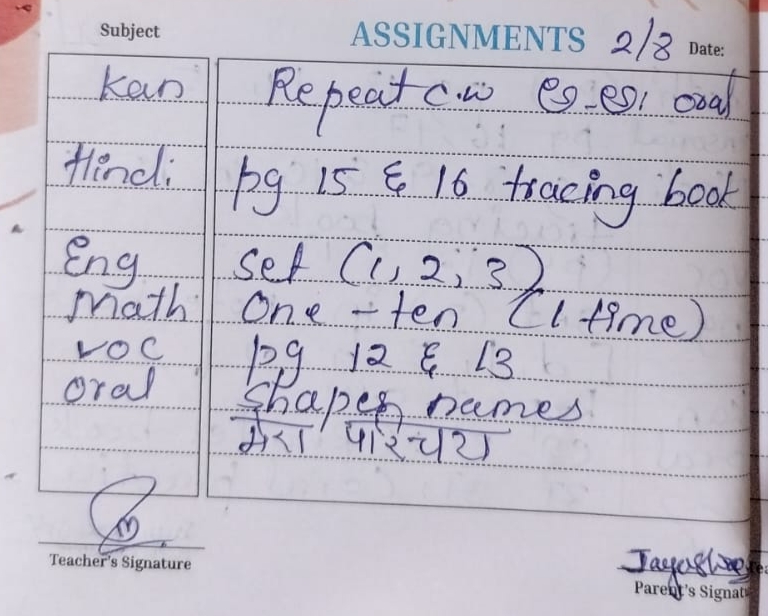 Subject ASSIGNMENTS 2/8 Date:
Kan Repeat c.w ಅ-ಅಃ oral
Hindi pg 15 & 16 tracing book
Eng Set (1, 2, 3)
Math One - ten (1 time)
VOC pg 12 & 13
Oral Shapes names
मेरा परिचय
Teacher's Signature
Parent's Signat